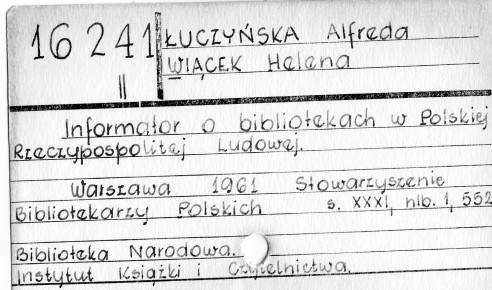 16 241
II
ŁUCZYŃSKA Alfreda
WIĄCEK Helena
Informator o bibliotekach w Polskiej
Rzeczypospolitej Ludowej.
Warszawa 1961 Stowarzyszenie
Bibliotekarzy Polskich s. XXXI, nlb. 1, 552
Biblioteka Narodowa.
Instytut Książki i Czytelnictwa.